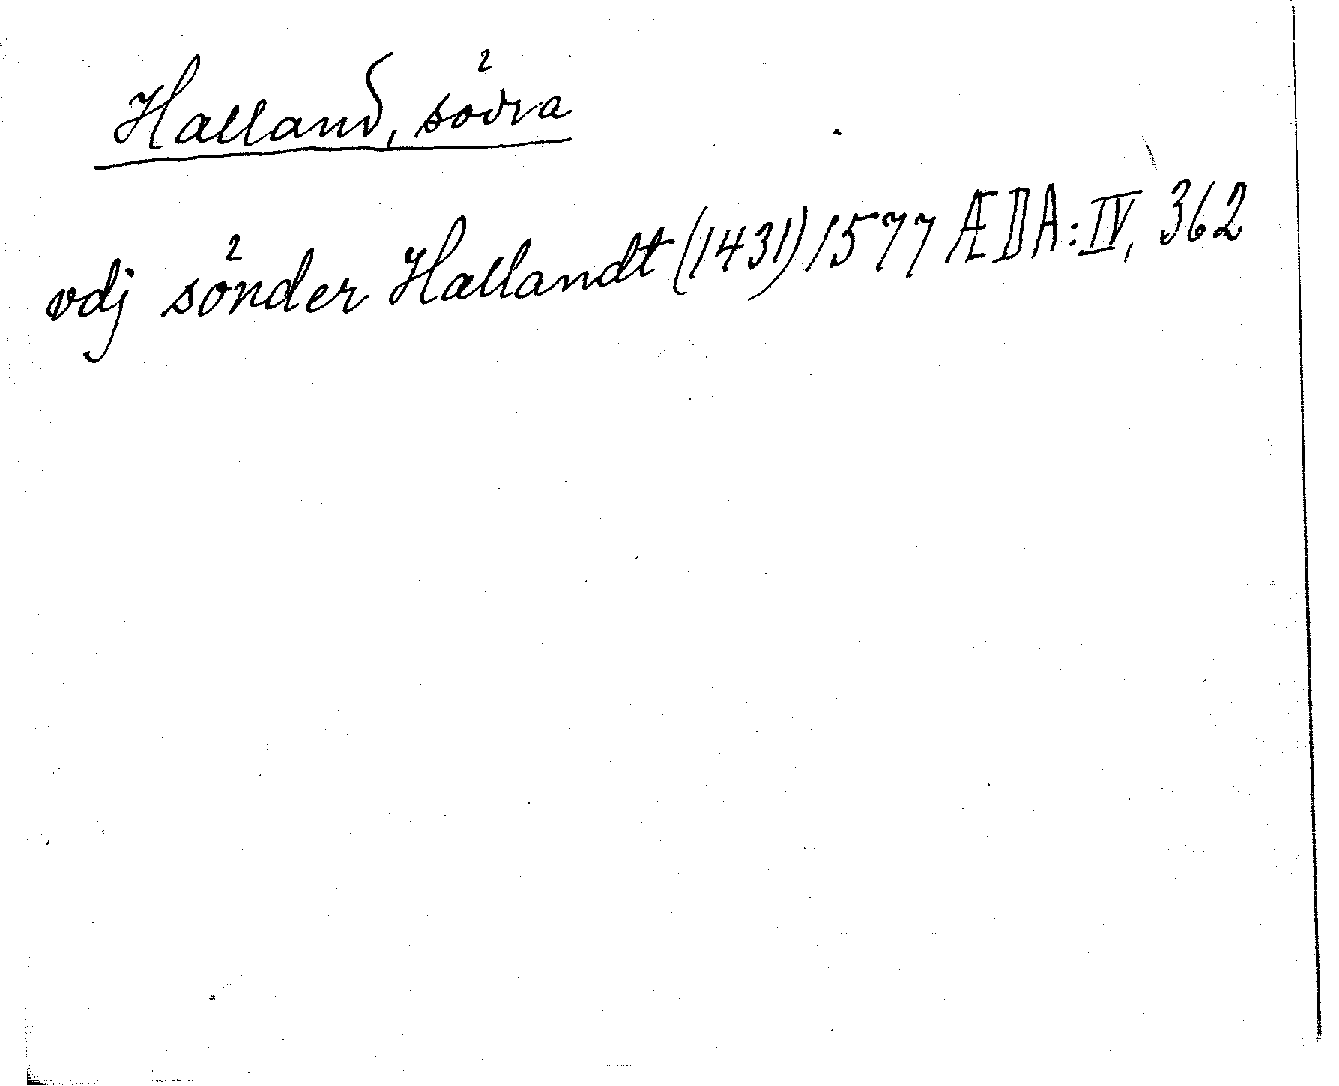 Halland, södra
vdj sönder Hallandt (1431) 1577 ÆDA:IV, 362